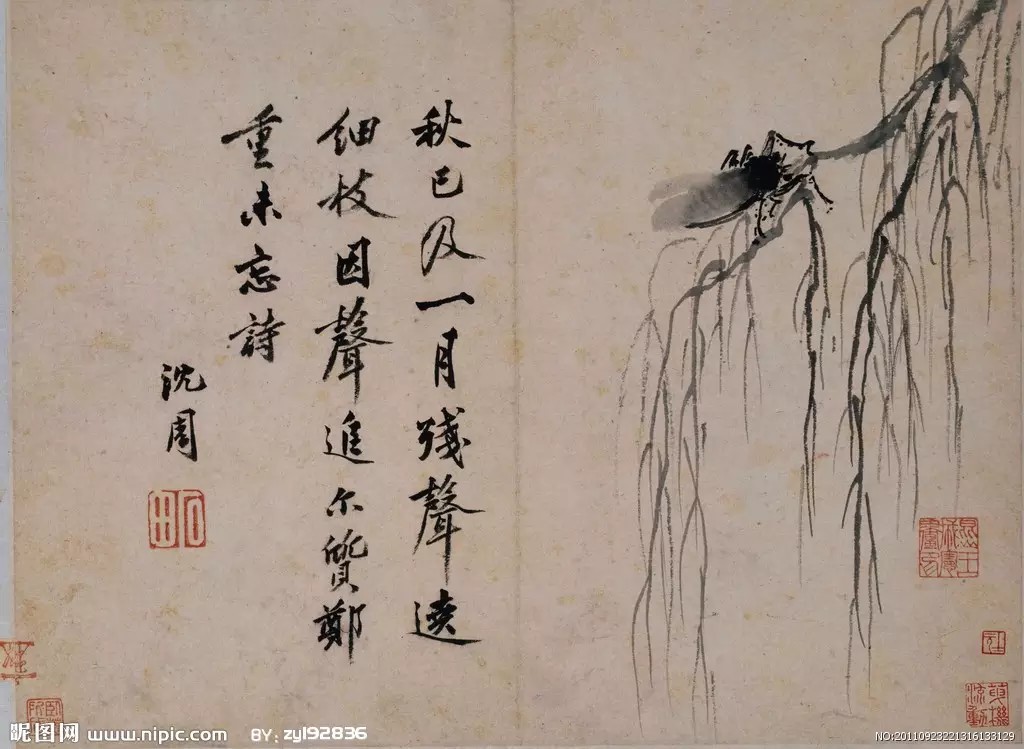 秋已及一月殘聲遶
細枝因聲追尓質鄭
重未忘詩
沈周
石田
昵图网 www.nipic.com BY: zyl92836 NO:20110923221316133129